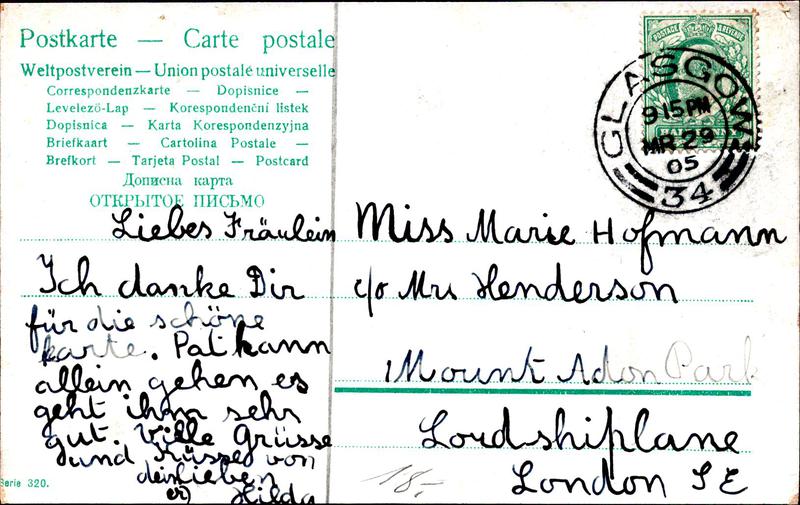 Postkarte — Carte postale
Weltpostverein — Union postale universelle
Correspondenzkarte — Dopisnice —
Levelező-Lap — Korespondenční listek
Dopisnica — Karta Korespondenzyjna
Briefkaart — Cartolina Postale —
Brefkort — Tarjeta Postal — Postcard
Дописна карта
ОТКРЫТОЕ ПИСЬМО
Liebes Fräulein
Ich danke Dir
für die schöne
karte. Pat kann
allein gehen es
geht ihm sehr
gut. Ville Grüsse
und Küsse von
Hilda
Serie 320.
POSTAGE & REVENUE
HALFPENNY
GLASGOW
9 15 PM
MR 29
05
34
Miss Marie Hofmann
c/o Mrs Henderson
Mount Adon Park
Lordshiplane
London SE
18.-